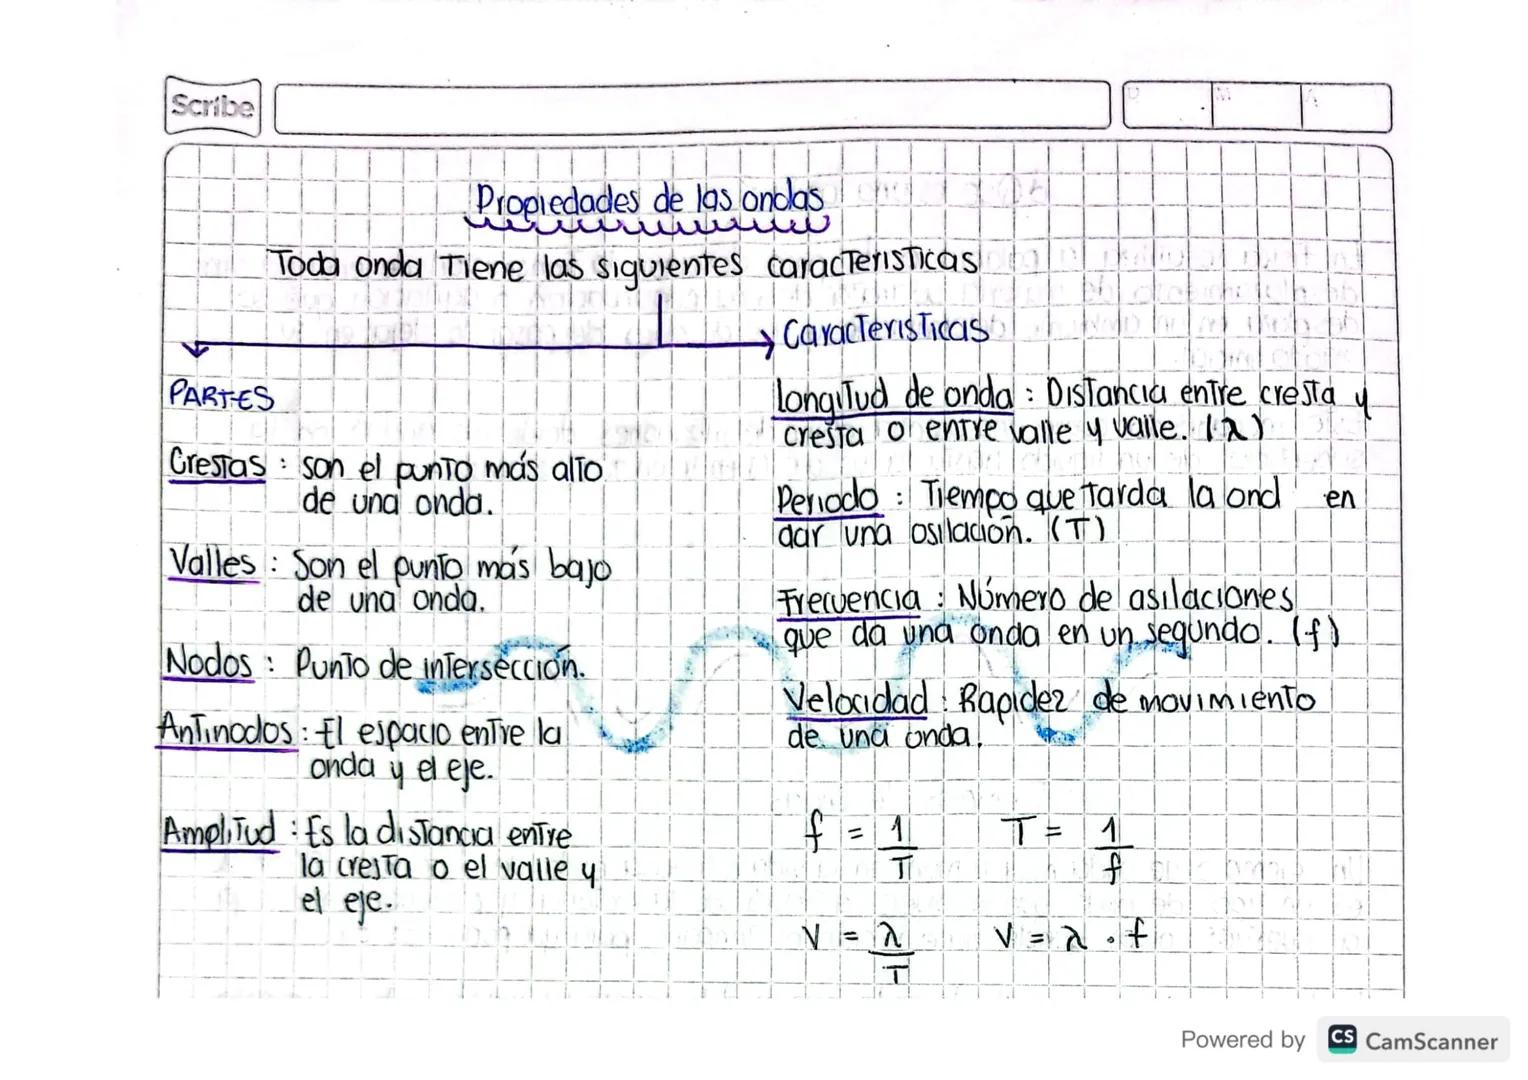 Scribe
D M A
Propiedades de las ondas
Toda onda Tiene las siguientes características
PARTES
Crestas : son el punto más alto
de una onda.
Valles : Son el punto más bajo
de una onda.
Nodos : Punto de intersección.
Antinodos : El espacio entre la
onda y el eje.
Amplitud : Es la distancia entre
la cresta o el valle y
el eje.
Características
Longitud de onda : Distancia entre cresta y
cresta o entre valle y valle. (λ)
Periodo : Tiempo que tarda la ond en
dar una osilación. (T)
Frecuencia : Número de asilaciones
que da una onda en un segundo. (f)
Velocidad : Rapidez de movimiento
de una onda.
f = 1/T T = 1/f
V = λ/T V = λ . f
Powered by CS CamScanner